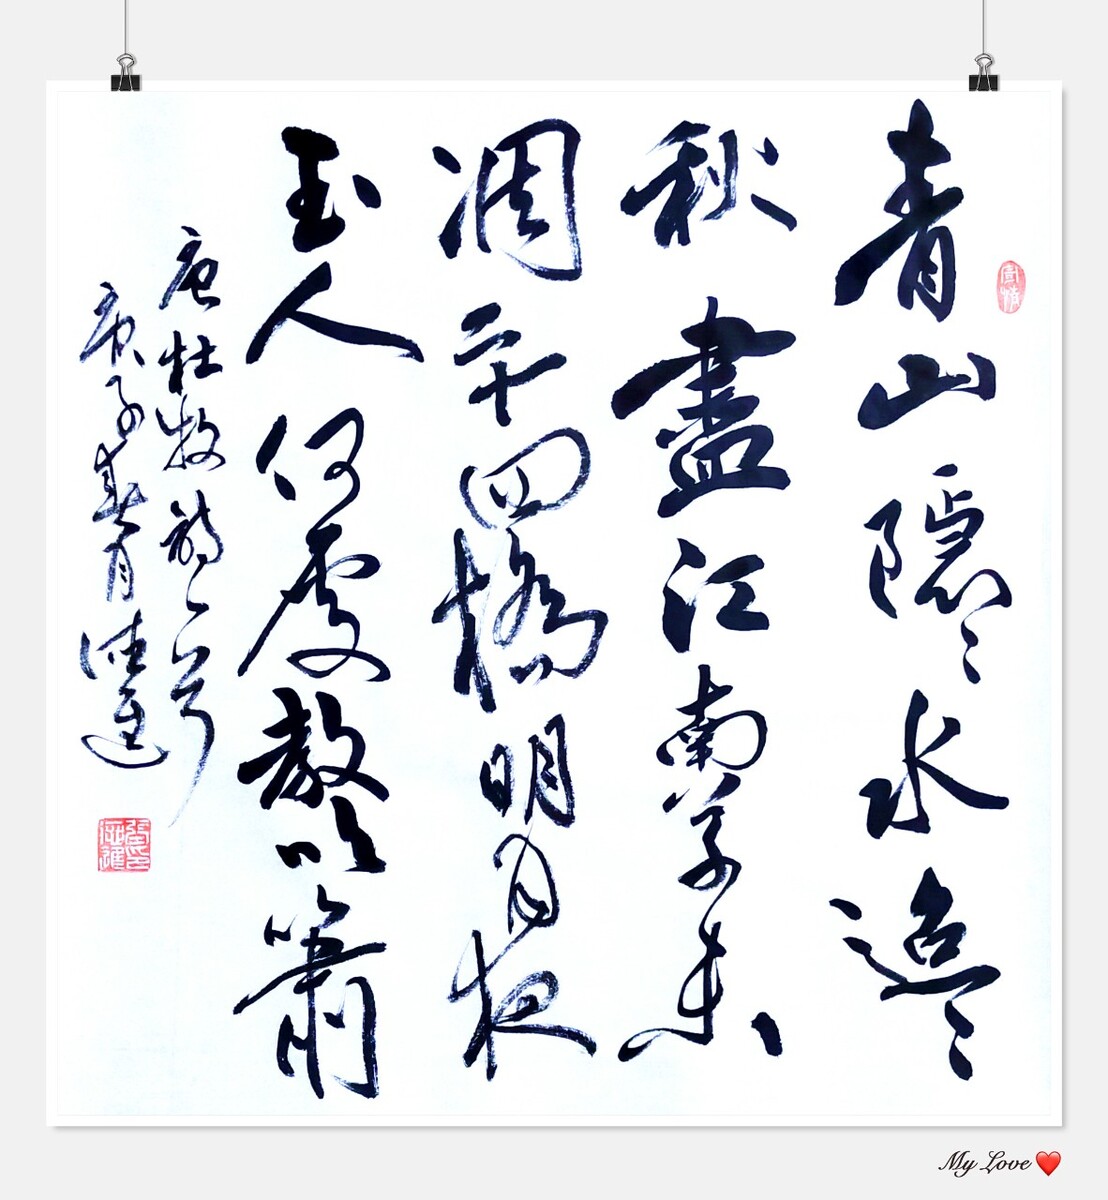 青山隱〻水迢〻
秋盡江南草未
凋二十四橋明月夜
玉人何處教吹簫
唐杜牧詩一首
庚子春月
My Love